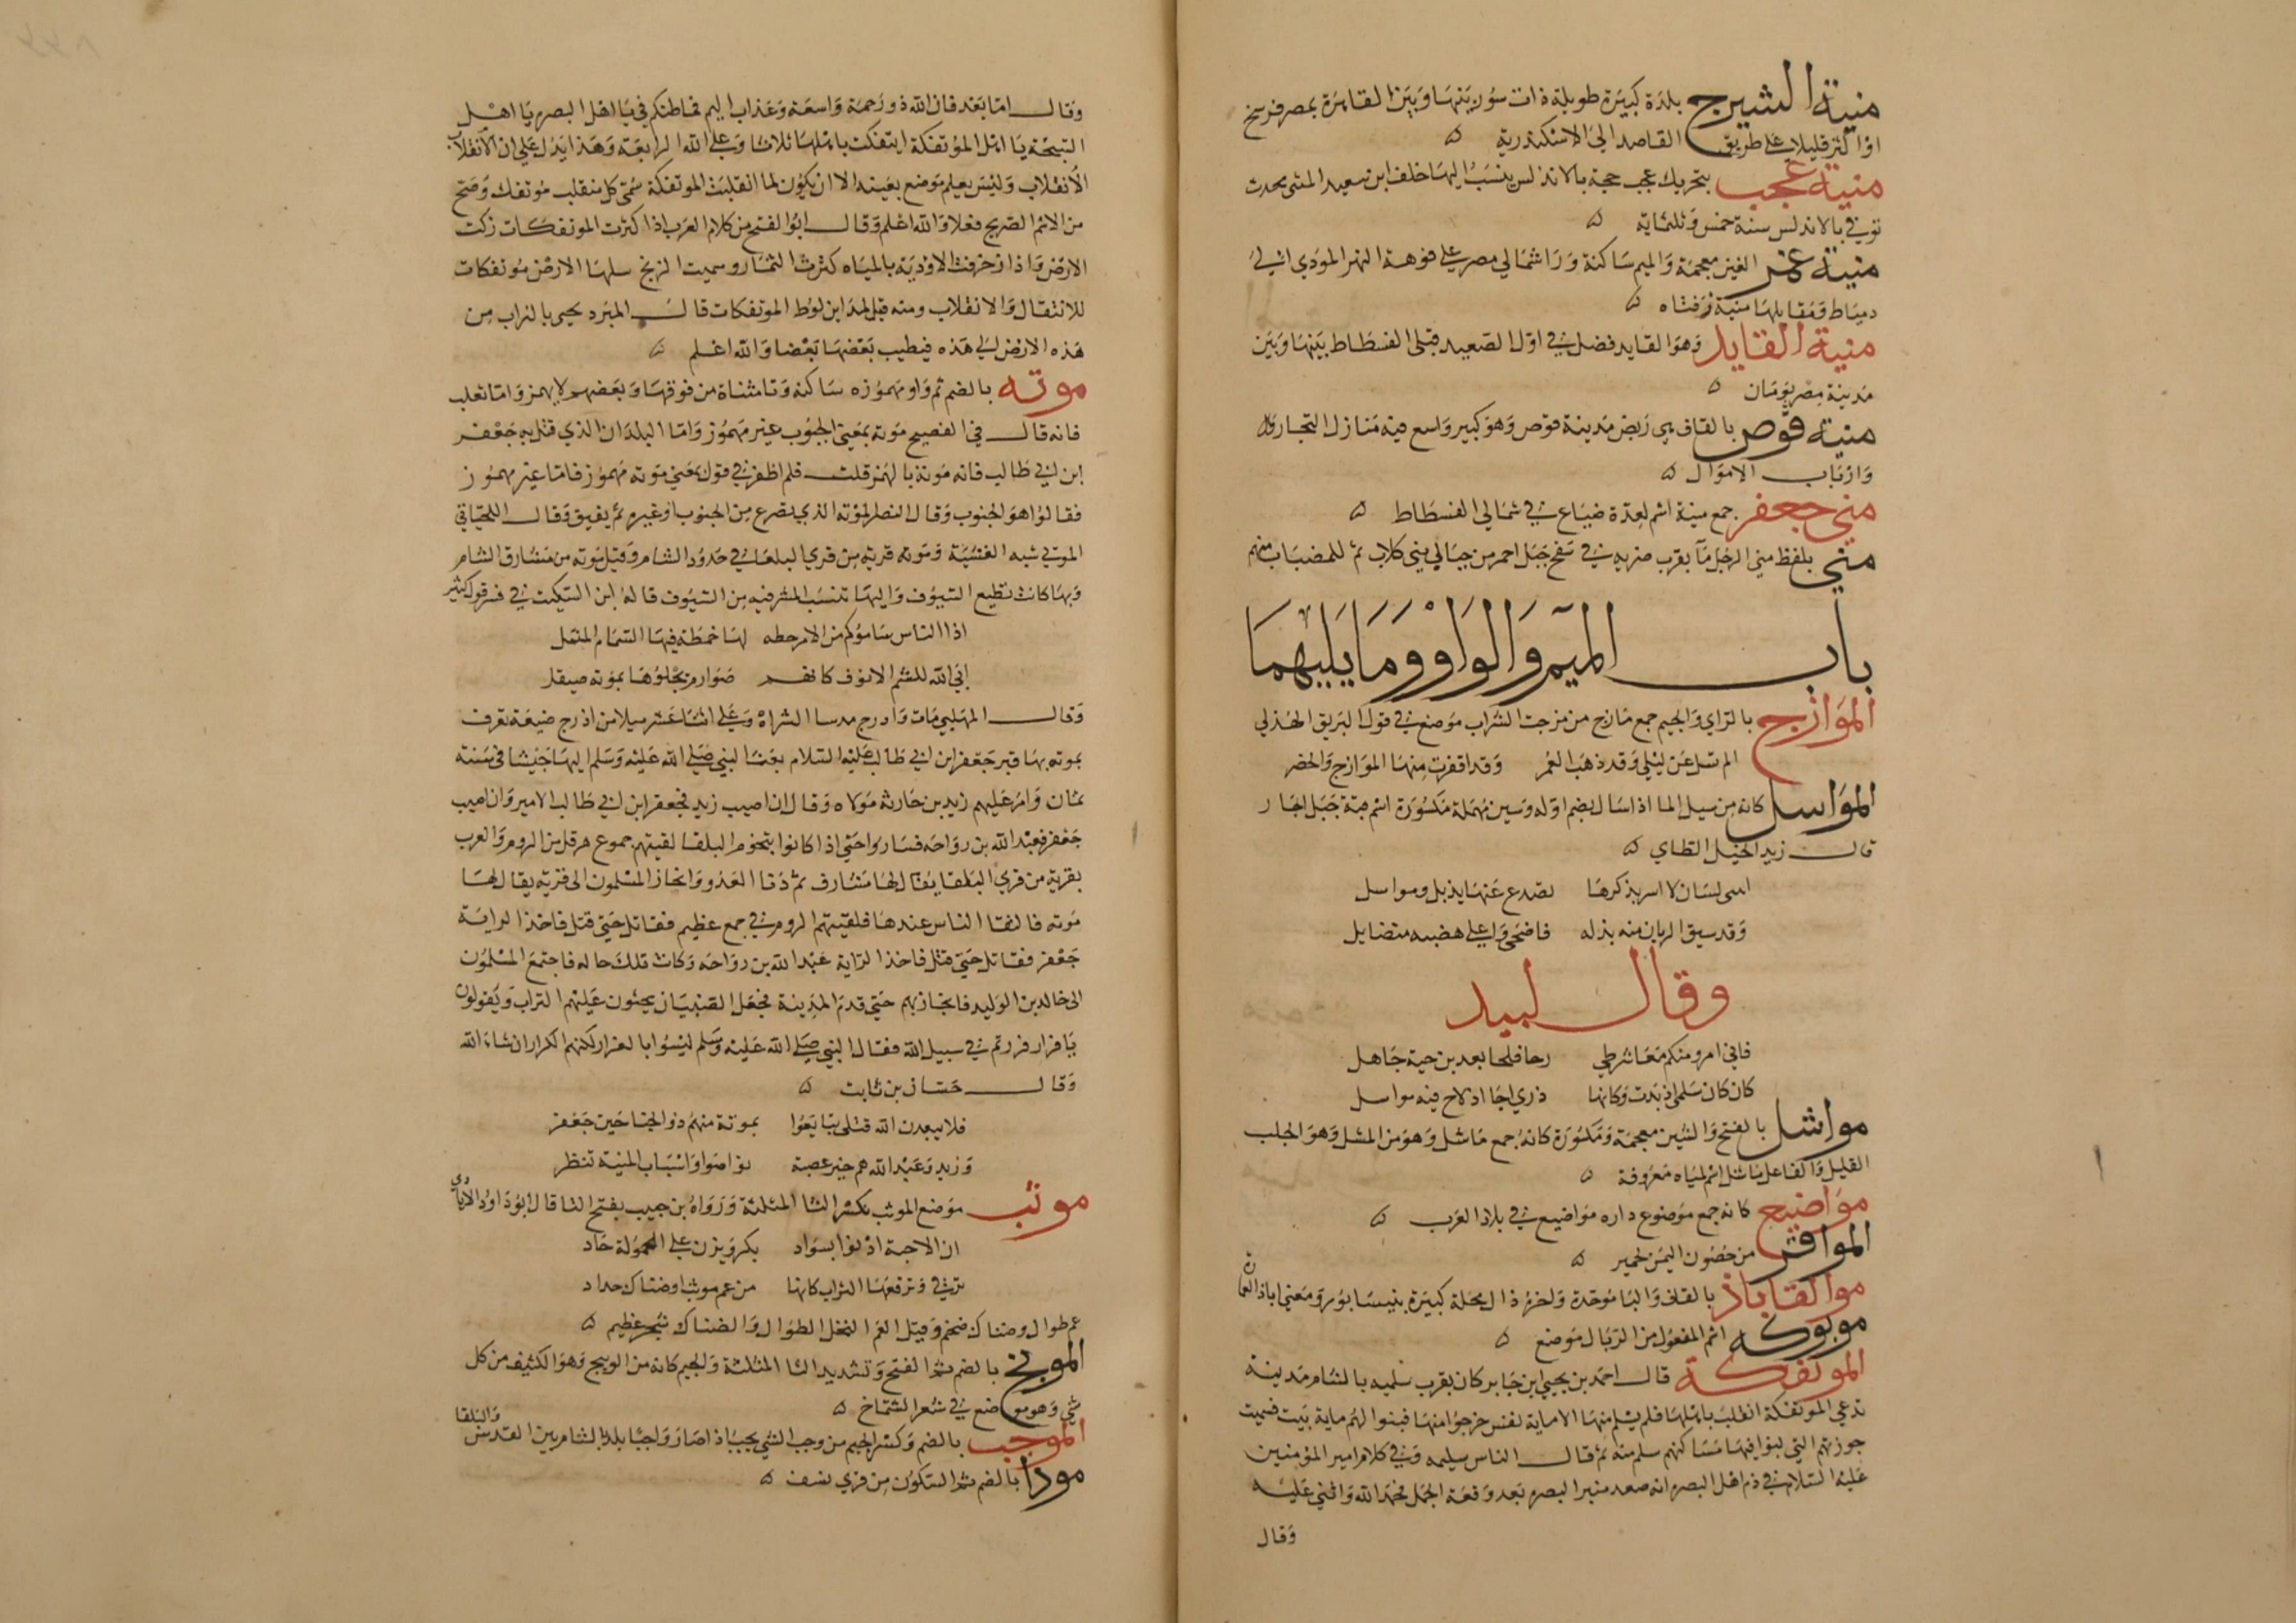 منية الشيرج بلدة كبيرة طويلة ذات سوق بينها وبين القاهرة بمصر فرسخ
او اكثر قليلا على طريق القاصد الى الاسكندرية
منية عجب بتحريك عجب جمة بالاندلس ينسب اليها خلف ابن سعيد المنى محدث
توفي بالاندلس سنة خمس وثلثماية
منية غمر الغين معجمة والميم ساكنة ورا شمالي مصر على فوهة النهر المودي الى
دمياط ومقابلها منية زفتاه
منية القايد وهو القايد فضل في اول الصعيد قبلى الفسطاط بينها وبين
مدينة مصر يومان
منية قوص بالقاف هي ربض مدينة قوص وهو كبير واسع فيه منازل التجار
وارباب الاموال
منى جعفر جمع منية اسم لعدة ضياع في شمالي الفسطاط
منى بلفظ منى الرجل مآ بقرب ضريه في سفح جبل احمر من جبال بني كلاب ثم للضباب منهم
باب الميم والواو وما يليهما
الموازج بالزاي والجيم جمع مازج من مزجت الشراب موضع في قول البريق الهذلي
الم تسل عن ليلى وقد ذهب العمر وقد اقفرت منها الموازج والحضر
المواسل كانه من سيل الما اذا سال بضم اوله وسين مهملة مكسورة اسم قنة جبل اجا
قال زيد الخيل الطاي
لسان لا اسر بذكرها تصدع عنها يذبل ومواسل
وقد سبق الريان منه بذله فاضحى واعلى هضبه متضايل
وقال لبيد
كان كان سلمى اذ بدت وكانها ذرى اجا اذ لاح فيه مواسل
مواشل بالفتح والشين معجمة ومكسورة كانه جمع ماشل وهو من المشل وهو الحلب
القليل والفاعل ماشل اسم لمياه معروفة
مواضيع كانه جمع موضوع داره مواضيع في بلاد العرب
الموافر من حصون اليمن لحمير
موالقاباذ بالقاف والبا موحدة واخره ذال محلة كبيرة بنيسابور ومعنى اباذ العمارة
موبوله اسم المفعول من الربال موضع
الموتفكة قال احمد بن يحيى ابن جابر كان بقرب سلميه بالشام مدينة
تدعى الموتفكة انقلبت باهلها فلم يسلم منها الا ماية نفس خرجوا منها فبنوا لهم ماية بيت فسميت
حوزتهم التي بنوا فيها مساكنهم سلم منه ثم قال الناس سليمه وفي كلام امير المومنين
عليه السلام في ذم اهل البصره انه صعد منبر البصره بعد وقعة الجمل فحمد الله واثنى عليه
وقال
وقال اما بعد فان الله ذو رحمة واسعة وعذاب اليم فما ظنكم في يا اهل البصره يا اهل
السبخة يا اهل الموتفكة ايتفكت باهلها ثلاثا وعلى الله الرابعة وهذا يدل على ان الانقلاب
الانقلاب وليس يعلم موضع بعينه الا ان يكون لما انقلبت الموتفكة سمي كل منقلب موتفك وصح
من الاسم الصريح فعلا والله اعلم وقال ابو الفتح من كلام العرب اذا كثرت الموتفكات زكت
الارض واذا زخرفت الاودية بالمياه كثرت الثمار وسميت الريح سلها الارض موتفكات
للانتقال والانقلاب ومنه قيل لمداين لوط الموتفكات قال المبرد يحيى بالتراب من
هذه الارض الى هذه فيطيب بعضها بعضا والله اعلم
موته بالضم ثم واو مهموزه ساكنه وتا مثناة من فوقها وبعضهم لا يهمز واما ثعلب
فانه قال في الفصيح موته بمعنى الجنون غير مهموز واما البلد ان الذي قتل به جعفر
ابن ابي طالب فانه موتة بالهمز قلت فلم اظفر في قول بمعنى موته مهموز فاما غير مهموز
فقالوا هو الجنون وقال النضر الموته الذي يصرع من الجنون او غيره ثم يفيق وقال اللحياني
الموتى شبه الغشية وموته قرية من قرى البلقا في حدود الشام وقيل موته من مشارق الشام
وبها كانت تطبع السيوف واليها تنسب المشرفيه من السيوف قاله ابن السكيت في قول كثير
اذا الناس ساموكم من الامر خطه لها خمطة فيها السمام المثمل
ابى الله للشم الانوف كانهم صوارم يجلوها بموته صيقل
وقال المهلبي مات واذرح مدينتا الشراة وعلى اثنا عشر ميلا من اذرح ضيعة تعرف
بموته بها قبر جعفر ابن ابي طالب عليه السلام بعث النبي صلى الله عليه وسلم اليها جيشا في سنة
ثمان وامر عليهم زيد بن حارثه مولاه وقال ان اصيب زيد فجعفر ابن ابي طالب الامير وان اصيب
جعفر فعبد الله بن رواحه فساروا حتى اذا كانوا بتخوم البلقا لقيتهم جموع هرقل من الروم والعرب
بقرية من قرى البلقا يقال لها مشارف ثم دنا العدو وانحاز المسلمون الى قرية يقال لها
موته فالتقا الناس عندها فلقيتهم الروم في جمع عظيم فقاتل حتى قتل فاخذ الراية
جعفر فقاتل حتى قتل فاخذ الراية عبد الله بن رواحه وكانت تلك حاله فاجتمع المسلمون
الى خالد بن الوليد فانحاز بهم حتى قدم المدينة فجعل الصبيان يحثون عليهم التراب ويقولون
يا فرار فررتم في سبيل الله فقال النبي صلى الله عليه وسلم ليسوا بالفرار لكنهم الكرار ان شاء الله
وقال حسان بن ثابت
فلا يبعدن الله قتلى تتابعوا بموتة منهم ذو الجناحين جعفر
وزيد وعبد الله هم خير عصبة تواصوا واسباب المنية تنظر
موثب موضع الموثب بكسر الثا المثلثة ورواه بن حبيب بفتح الثا قال ابو داود الايادي
ان الاحبة اذنوا بسواد بكر ويزن على الحمولة حاد
ترقى وترفعها السراب كانها من عم موثب او ضناك حداد
عم طوال وضناك ضخم وقيل العم النخل الطوال والضناك شجر عظيم
الموثج بالضم ثم الفتح وتشديد الثا المثلثة والجيم كانه من الوثيج وهو الكثيف من كل
شي وهو موضع في شعر الشماخ
الموجب بالضم وكسر الجيم من وجب الشي يجب اذا صار واجبا بلد بالشام بين القدس والبلقا
مودا بالضم ثم السكون من قرى نسف